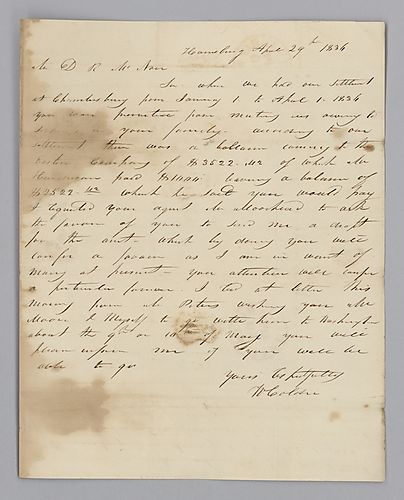 Harrisburg April 29th 1836
Mr D R McNair
Sir when we had our settlement
at Chambersburg from January 1 to April 1. 1836
you were from meeting us owing to
in your family. according to our
settlement there was a ballance coming to the
Company of $3522.42 of which Mr
paid leaving a balance of
$3522.42 which he said you would pay
I requested your agent Mr Moorhead to ask
the favour of you to send me a draft
for the amt. which by doing you will
confer a favour as I am in want of
money at present your attention will confer
a particular favour. I got at letter this
morning from Mr Peters wishing you Mr
Moore & Myself to go with him to Washington
about the 9th or 10th of May you will
please inform me if you will be
able to go
Yours Respectfully
W Colder